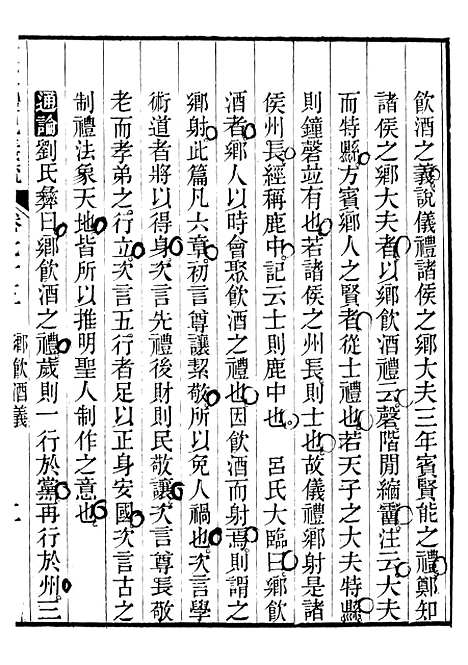 飮酒之義說儀禮諸侯之鄉大夫三年賓賢能之禮鄭知
諸侯之鄉大夫者以鄉飮酒禮云磬階閒縮霤注云大夫
而特縣方賓鄉人之賢者從士禮也若天子之大夫特縣
則鐘磬竝有也若諸侯之州長則士也故儀禮鄉射是諸
侯州長經稱鹿中記云士則鹿中也 呂氏大臨曰鄉飮
酒者鄉人以時會聚飮酒之禮也因飮酒而射焉則謂之
鄉射此篇凡六章初言尊讓絜敬所以免人禍也次言學
術道者將以得身次言先禮後財則民敬讓次言尊長敬
老而孝弟之行立次言五行者足以正身安國次言古之
制禮法象天地皆所以推明聖人制作之意也
通論劉氏彝曰鄉飮酒之禮歲則一行於黨再行於州三
鄉飮酒義